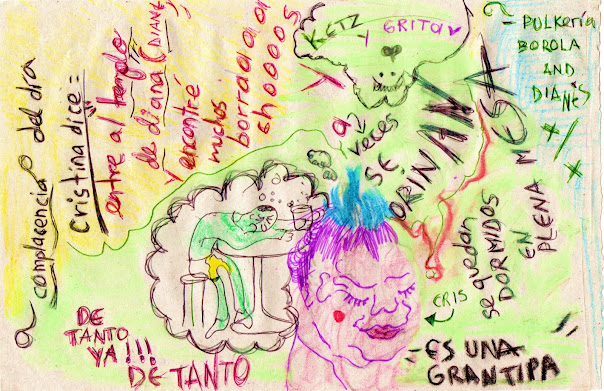 complacencia del dia
Cristina dice =
entre al templo
de diana (DIANE)
y encontré
muchos
borrada a a
shoooos
KETZ
Y GRITA
a
veces
SE
ORINAN A
MESA
EN
PLENA
se quedan
DORMIDOS
- PULKERÍA
BOROLA
AND
DIANE'S
DE
TANTO
YA!!!
DE TANTO
CRIS
ES UNA
GRANTIPA